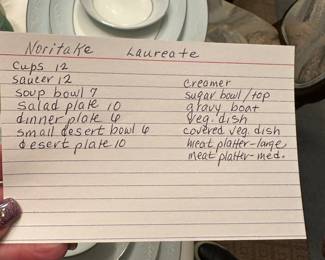 Noritake Laureate
cups 12
saucer 12
soup bowl 7
salad plate 10
dinner plate 6
small desert bowl 6
desert plate 10
creamer
sugar bowl/top
gravy boat
veg. dish
covered veg. dish
meat platter-large
meat platter-med.